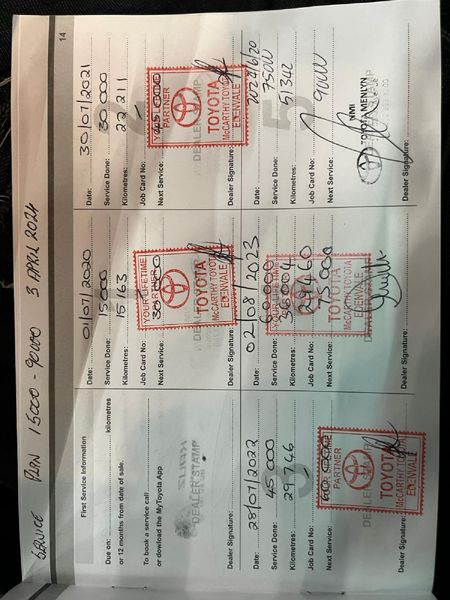 SERVICE PLAN 15000 - 90000 3 APRIL 2024
14
First Service Information
Due on: kilometres
or 12 months from date of sale.
To book a service call
or dowload the MyToyota App
DEALER STAMP
Dealer Signature:
Date: 01/07/2020
Service Done: 15000
Kilometres: 15 163
Job Card No:
Next Service: 30 000
YOUR LIFETIME
PARTNER
TOYOTA
McCARTHY TOYOTA
EDENVALE
Dealer Signature:
Date: 30/07/2021
Service Done: 30 000
Kilometres: 22 211
Job Card No:
Next Service: 45 000
YOUR LIFETIME
PARTNER
TOYOTA
McCARTHY TOYOTA
EDENVALE
Dealer Signature:
Date: 28/07/2022
Service Done: 45 000
Kilometres: 29 746
Job Card No:
Next Service: 60 000
PARTNER
TOYOTA
McCARTHY TOYOTA
EDENVALE
Dealer Signature:
Date: 02/08/2023
Service Done: 60 000
Kilometres:
Job Card No:
Next Service: 75 000
TOYOTA
McCARTHY TOYOTA
EDENVALE
Dealer Signature:
Date: 2024/6/20
Service Done: 75000
Kilometres: 51342
Job Card No:
Next Service: 90000
NMI
TOYOTA MENLYN
Dealer Signature: